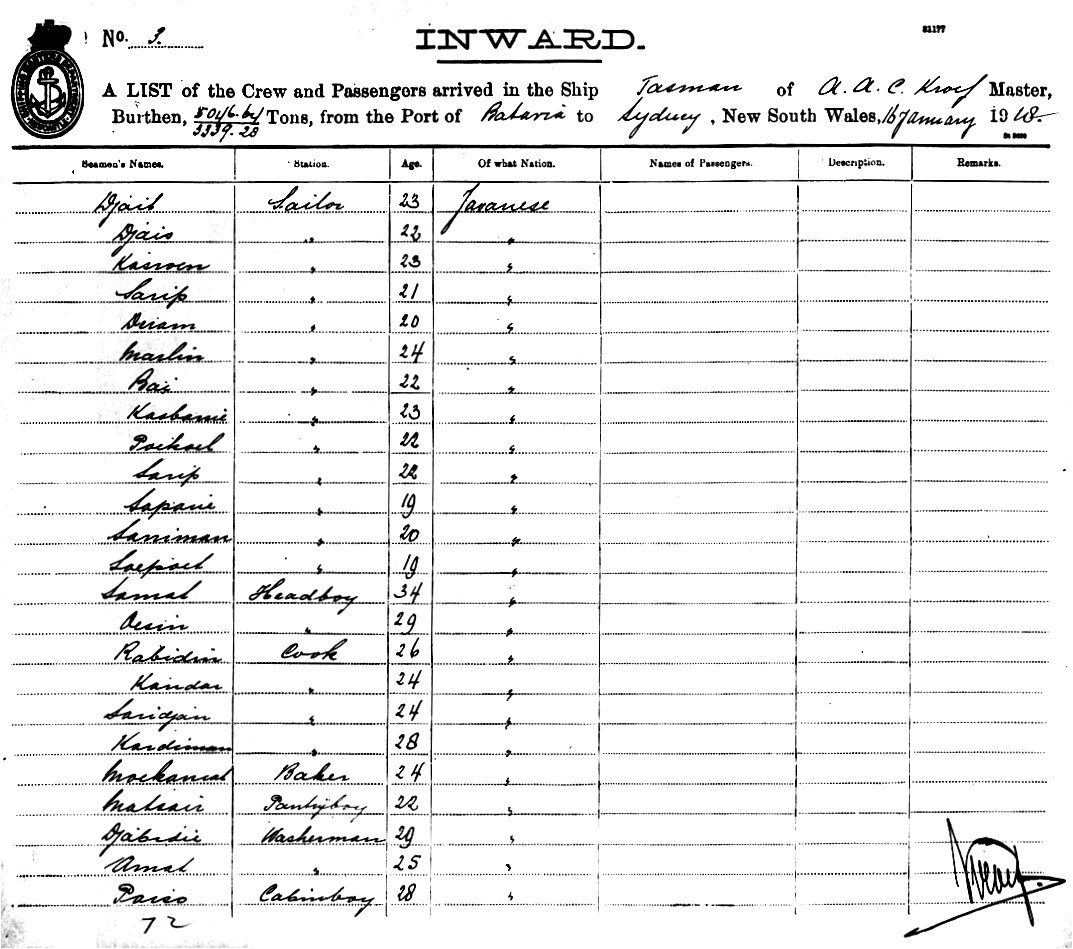 No. 3.
INWARD.
81177
A LIST of the Crew and Passengers arrived in the Ship Tasman of A. A. C. Kroef Master,
Burthen, 5046.64/3339.28 Tons, from the Port of Batavia to Sydney, New South Wales, 16 January 19
Seamen's Names. Station. Age. Of what Nation. Names of Passengers. Description. Remarks.
Djait Sailor 23 Javanese
Djais " 22 "
Kasroen " 23 "
Sarip " 21 "
" 20 "
Marlin " 24 "
Rai " 22 "
Kasbanie " 23 "
" 22 "
Sarip " 22 "
Sapanie " 19 "
Saniman " 20 "
Soepoet " 19 "
Samat Headboy 34 "
Oesin " 29 "
Rabidin Cook 26 "
Kandar " 24 "
Saridjan " 24 "
Kardiman " 28 "
Baker 24 "
Matsair Pantryboy 22 "
Djabidie Washerman 29 "
Amat " 25 "
Pariso Cabinboy 28 "
72